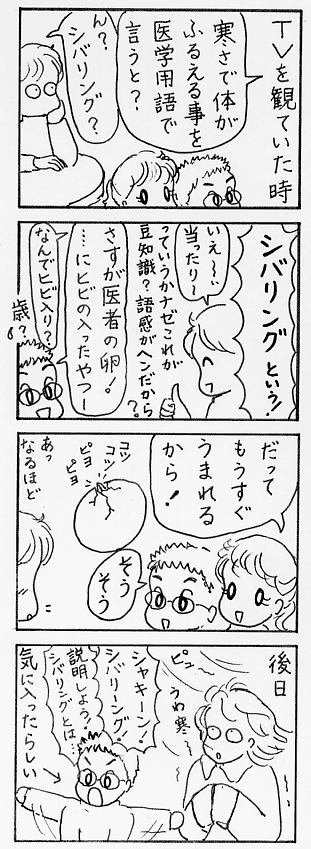 TVを観ていた時
寒さで体が
ふるえる事を
医学用語で
言うと？
ん？
シバリング？
シバリング
という！
いぇ〜い
当ったり〜
っていうかナゼこれが
豆知識？語感がヘンだから？
さすが医者の卵！
…にヒビの入ったやつー
なんでヒビ入り？
歳？
だって
もうすぐ
うまれる
から！
そう
そう
コツ
コツ
ピヨ
ピヨ
あっ
なるほど
後日
ピュー
うわ寒〜
シャキーン！
シバリーング！
説明しよう！
シバリングとは…
気に入ったらしい